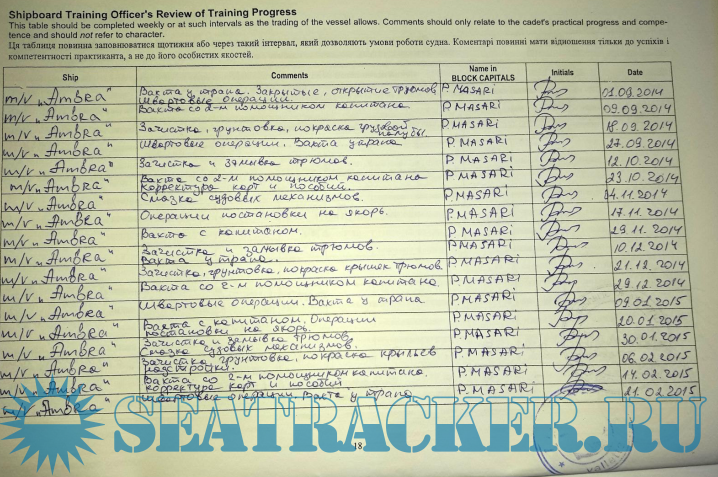 Shipboard Training Officer's Review of Training Progress
This table should be completed weekly or at such intervals as the trading of the vessel allows. Comments should only relate to the cadet's practical progress and compe-
tence and should not refer to character.
Ця таблиця повинна заповнюватися щотижня або через такий інтервал, який дозволяють умови роботи судна. Коментарі повинні мати відношення тільки до успіхів і
компетентності практиканта, а не до його особистих якостей.
Ship Comments Name in BLOCK CAPITALS Initials Date
m/v „Ambra" Вахта у трапа. Закрытие, открытие трюмов P. MASARI 01.09.2014
Швартовые операции.
m/v „Ambra" Вахта со 2-м помощником капитана P. MASARI 09.09.2014
m/v „Ambra" Зачистка, грунтовка, покраска грузовой палубы. P. MASARI 18.09.2014
m/v „Ambra" Швартовые операции. Вахта у трапа P. MASARI 27.09.2014
m/v „Ambra" Зачистка и замывка трюмов. P. MASARI 12.10.2014
m/v „Ambra" Вахта со 2-м помощником капитана P. MASARI 23.10.2014
Корректура карт и пособий.
m/v „Ambra" Смазка судовых механизмов. P. MASARI 04.11.2014
m/v „Ambra" Операции постановки на якорь. P. MASARI 17.11.2014
m/v „Ambra" Вахта с капитаном. P. MASARI 29.11.2014
m/v „Ambra" Зачистка и замывка трюмов. P. MASARI 10.12.2014
Вахта у трапа.
m/v „Ambra" Зачистка, грунтовка, покраска крышек трюмов. P. MASARI 21.12.2014
m/v „Ambra" Вахта со 2-м помощником капитана. P. MASARI 29.12.2014
m/v „Ambra" Швартовые операции. Вахта у трапа P. MASARI 09.01.2015
m/v „Ambra" Вахта с капитаном, Операции P. MASARI 20.01.2015
постановки на якорь.
m/v „Ambra" Зачистка и замывка трюмов P. MASARI 30.01.2015
Смазка судовых механизмов.
m/v „Ambra" Зачистка, грунтовка, покраска крыльев P. MASARI 06.02.2015
надстройки.
m/v „Ambra" Вахта со 2-м помощником капитана. P. MASARI 14.02.2015
Корректура карт и пособий
m/v „Ambra" Швартовые операции. Вахта у трапа P. MASARI 21.02.2015
SEATRACKER.RU
18